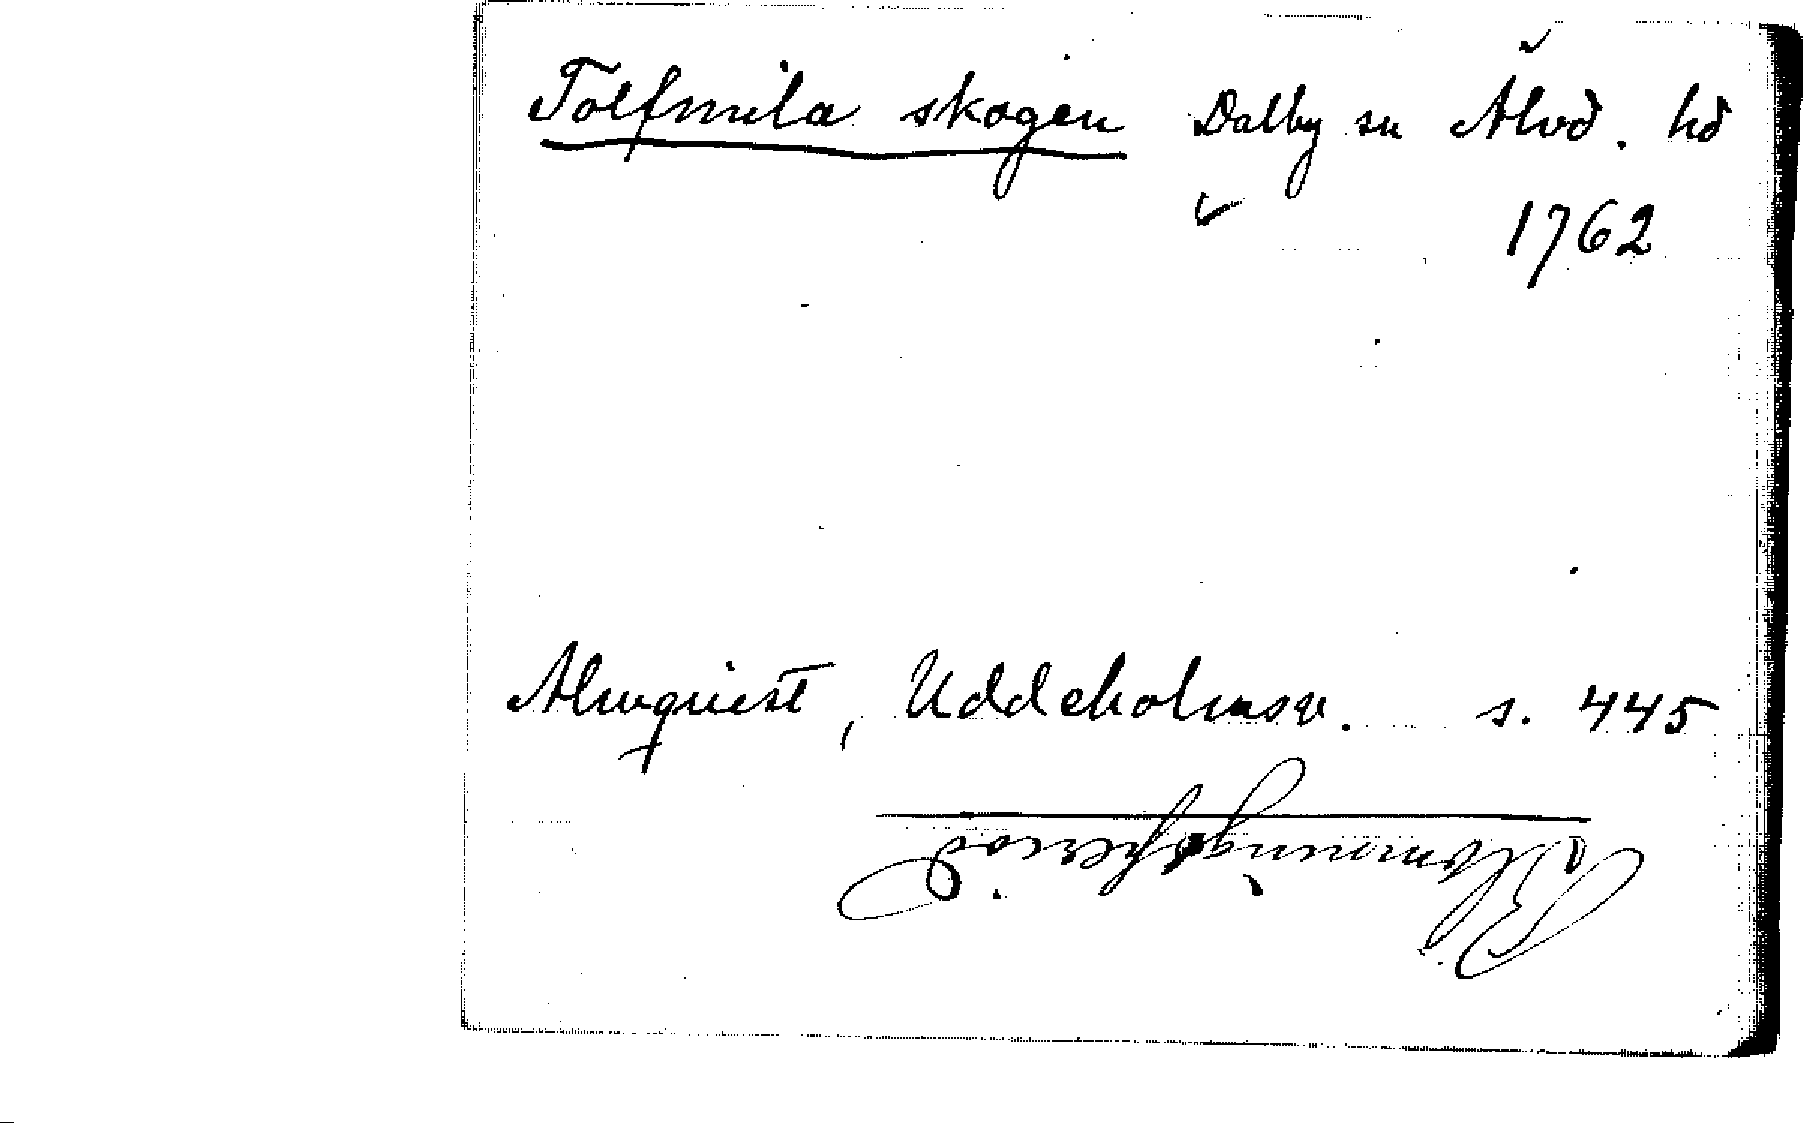 Tolfmila skogen Dalby sn Älvd. hd
1762
Almquist, Uddeholmsv. s. 445
Blomningsperiod